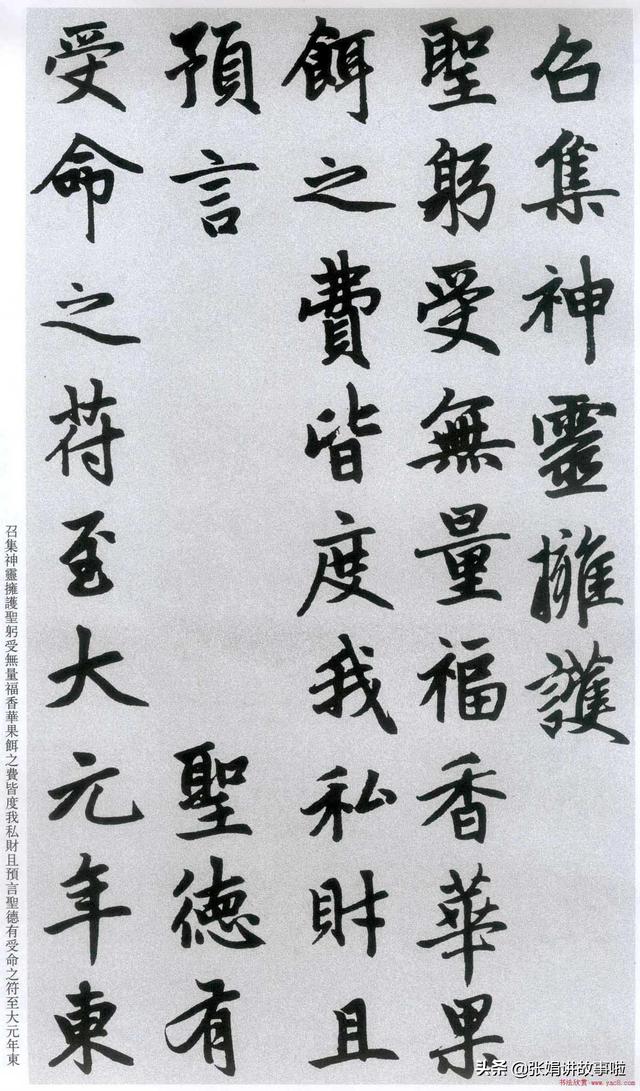 召集神靈擁護
聖躬受無量福香華果
餌之費皆度我私財且
預言 聖德有
受命之符至大元年東
召集神靈擁護聖躬受無量福香華果餌之費皆度我私財且預言聖德有受命之符至大元年東
头条 @张娟讲故事啦
书法欣赏 www.yac8.com